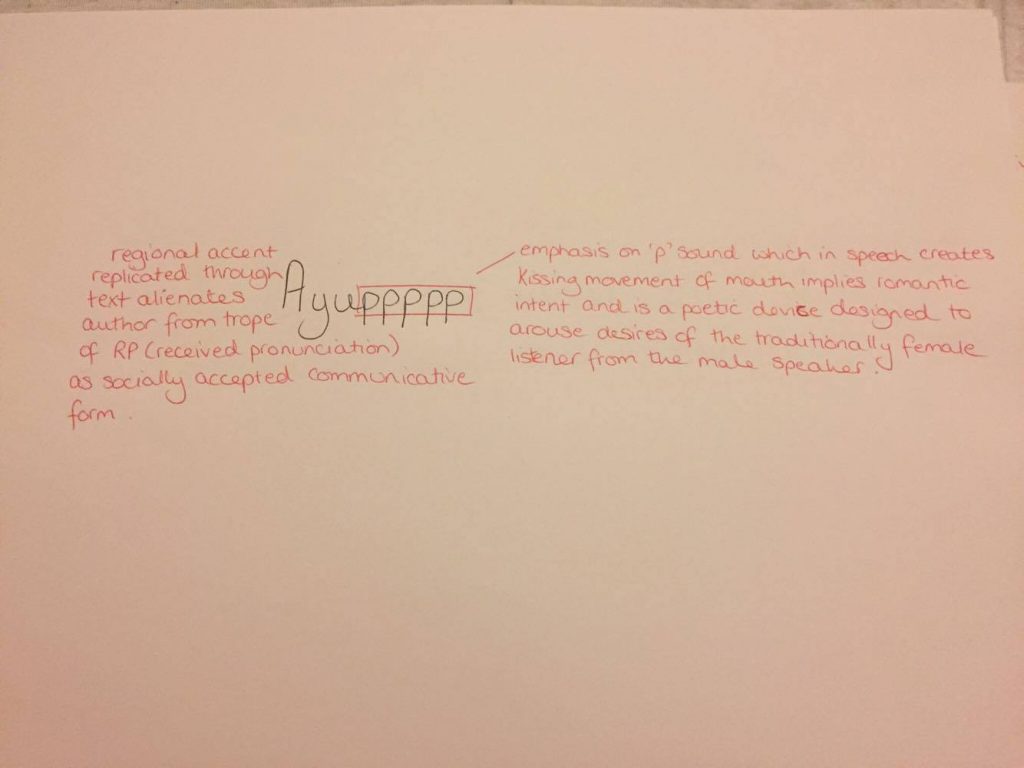 regional accent
replicated through
text alienates
author from trope
of RP (received pronunciation)
as socially accepted communicative
form.
Ayuppppp
emphasis on 'p' sound which in speech creates
kissing movement of mouth implies romantic
intent and is a poetic device designed to
arouse desires of the traditionally female
listener from the male speaker.